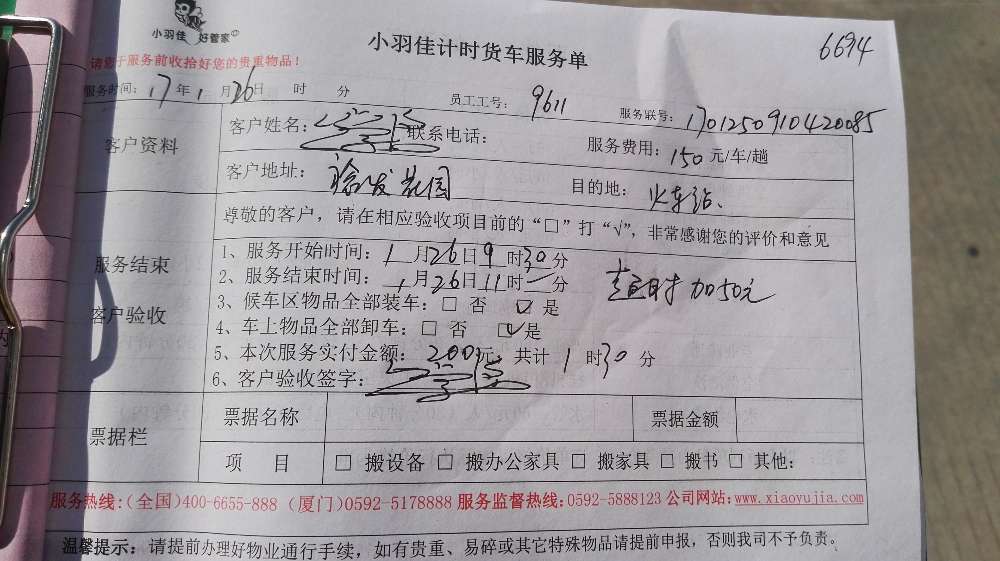 小羽佳 好管家
小羽佳计时货车服务单
6694
请您于服务前收拾好您的贵重物品！
服务时间：17年1月26日 时 分 员工工号：9611 服务联号：1701250910420085
客户资料
客户姓名： 联系电话： 服务费用：150元/车/趟
客户地址：花园 目的地：火车站、
尊敬的客户，请在相应验收项目前的“□”打“√”，非常感谢您的评价和意见
服务结束
客户验收
1、服务开始时间：1月26日9时30分
2、服务结束时间：1月26日11时一分 超时加50元
3、候车区物品全部装车：□ 否 ☑ 是
4、车上物品全部卸车：□ 否 ☑ 是
5、本次服务实付金额：200元，共计1时30分
6、客户验收签字：
票据栏
票据名称 票据金额
项 目 □ 搬设备 □ 搬办公家具 □ 搬家具 □ 搬书 □ 其他：
服务热线：(全国)400-6655-888 (厦门)0592-5178888 服务监督热线：0592-5888123 公司网站：www.xiaoyujia.com
温馨提示：请提前办理好物业通行手续，如有贵重、易碎或其它特殊物品请提前申报，否则我司不予负责。